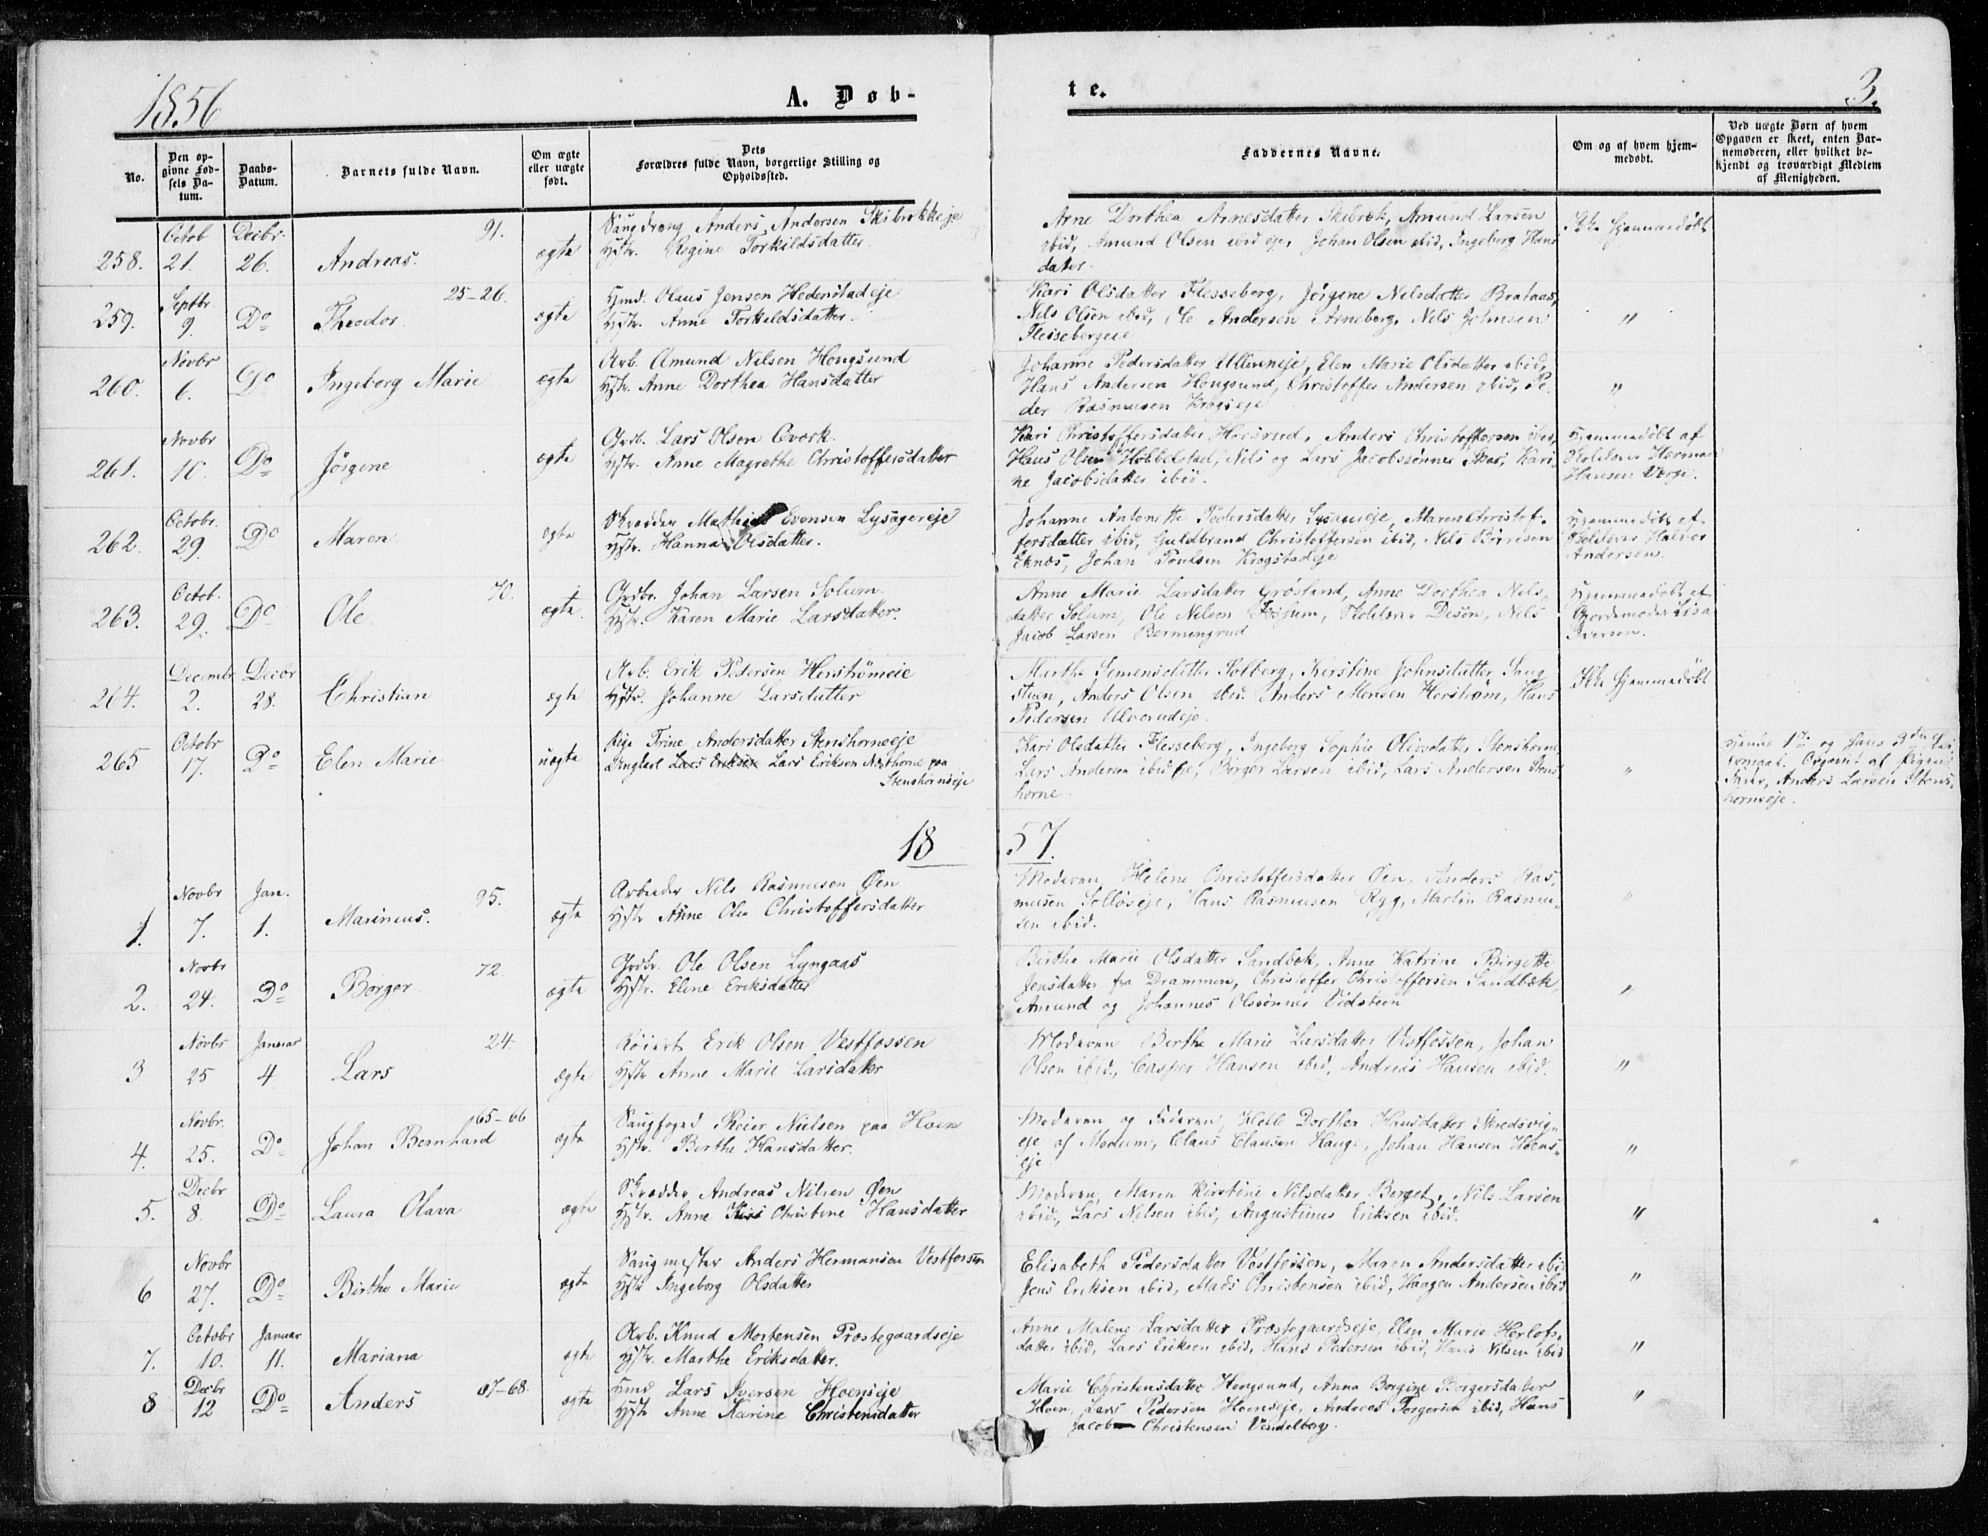 1856
A. Døb-
te.
3.
No.
Den op-
givne Fød-
sels Da-
tum.
Daabs-
Datum.
Barnets fulde Navn.
Om ægte
eller uægte
født.
Dets
Forældres fulde Navn, borgerlige Stilling og
Opholdssted.
Faddernes Navne.
Om og af hvem hjem-
medøbt.
Ved uægte Børn af hvem
Opgaven er skeet, enten Bar-
nemoderen, eller hvilket be-
kjendt og troværdigt Medlem
af Menigheden.
258. Octob 21. Decbr. 26. Andreas. 91. ægte
Saugdreng Anders Andersen Skibrekkeje
Hstr. Regine Torkildsdatter.
Anne Dorthea Arnesdatter Skibrek, Amund Larsen
ibid, Amund Olsen ibid eje, Johan Olsen ibid, Ingeborg Hans
datter.
Ikke hjemmedøbt
259. Septbr. 9. Do Theodor. 25-26. ægte
Hmd. Olaus Jensen Hedenstadeje
Hstr. Anne Torkildsdatter.
Kari Olsdatter Flesseberg, Jørgine Nilsdatter Brataas,
Nils Olsen ibid, Ole Andersen Arneberg, Nils Johnsen
Flessebergeie
"
260. Novbr 6. Do Ingeborg Marie ægte
Arb. Amund Nilsen Hougsund
Hstr. Anne Dorthea Hansdatter
Johanne Pedersdatter Ulleveneje, Elen Marie Olsdatter ibid,
Hans Andersen Hougsund, Christoffer Andersen ibid, Pe-
der Rasmusen Krogseje
"
261. Novbr 10. Do Jørgine ægte
Grdb. Lars Olsen Qværk.
Hstr. Anne Magrethe Christoffersdatter
Kari Christoffersdatter Horsrud, Anders Christoffersen ibid,
Hans Olsen Hobbelstad, Nils og Lars Jacobssønner Skar, Kari-
ne Jacobsdatter ibid.
Hjemmedøbt af
Skolelærer Herman
Hansen Vorge.
262. Octobr. 29. Do Maren ægte
Skrædder Mathias Evensen Lysagereje
Hstr. Hanna Olsdatter.
Johanne Antonette Pedersdatter Lysagereje, Maren Christof-
fersdatter ibid, Guldbrand Christoffersen ibid, Nils Børresen
Eknæs, Johan Poulsen Krogstadeje
Hjemmedøbt af
Skolelærer Halvor
Andersen.
263. Octob. 29. Do Ole 70. ægte
Grdbr. Johan Larsen Solum.
Hstr. Karen Marie Larsdatter.
Anne Marie Larsdatter Grøsland, Anne Dorthea Nils-
datter Solum, Ole Nilsen Fossum, Skolelærer Desen, Nils
Jacob Larsen Bermengrud
Hjemmedøbt af
Gjordemoder Lisa
Iversen.
264. Decembr 2. Decbr 28. Christian ægte
Arb. Erik Pedersen Herstrømeie
Hstr. Johanne Larsdatter
Marthe Simensdatter Solberg, Kerstine Johnsdatter Saug
stuen, Anders Olsen ibid. Anders Monsen Herstrøm, Hans
Pedersen Ulverudeje.
Ikke hjemmedøbt
265 Octobr 17. Do Elen Marie uægte
Pige Trine Andersdatter Stenshorneeje
Ungkarl Lars Eriksen Lars Eriksen Næshorne paa
Stenshorneeje
Kari Olsdatter Flesseberg, Ingeborg Sophie Olesdatter Stenshorne,
Lars Andersen ibid eje, Børger Larsen ibid, Lars Andersen Stens
horne.
"
hendes 1ste og hans 3die Lei-
ermaal. Opgavet af Pigens
Fader, Anders Larsen Stens-
horneeje.
1857.
1. Novbr 7. Jan. 1. Marinius. 95. ægte
Arbeider Nils Rasmusen Øen
Hstr Anne Olea Christoffersdatter
Moderen, Helene Christoffersdatter Øen, Anders Ras-
musen Solløseje, Hans Rasmusen Ryg, Martin Rasmu-
sen ibid.
"
2. Novbr 24. Do Børger 72 ægte
Grdbr. Ole Olsen Lyngaas
Hstr. Eline Eriksdatter
Birthe Marie Olsdatter Sandbæk, Anne Katrine Birgette
Jensdatter fra Drammen, Christoffer Christoffersen Sandbæk,
Amund og Johannes Olssønner Vidsteen
"
3 Novbr 25 Januar 4. Lars 24. ægte
Røiert Erik Olsen Vestfossen
Hstr Anne Marie Larsdatter
Moderen Berthe Marie Larsdatter Vestfossen, Johan
Olsen ibid., Casper Hansen ibid, Andreas Hansen ibid.
"
4. Novbr. 25. Do Johan Bernhard 65-66 ægte
Saugfoged Reier Nielsen paa Hoen
Hstr. Birthe Hansdatter.
Moderen og Faderen, Helle Dorthea Hansdatter Skredsvig-
eje af Modum, Claus Clausen Hauge, Johan Hansen Hoens-
eje
"
5. Decbr 8. Do Laura Olava ægte
Skrædder Andreas Nilsen Øen
Hstr. Anne Christine Hansdatter
Moderen, Maren Kirstine Nilsdatter Berget, Nils Larsen
ibid., Lars Nilsen ibid, Augustinus Eriksen ibid.
"
6 Novbr 27. Do Birthe Marie ægte
Saugmester Anders Hermansen Vestfossen
Hstr Ingeborg Olsdatter
Elisabeth Pedersdatter Vestfossen, Maren Andersdatter ibi
Jens Eriksen ibid, Mads Christensen ibid, Haagen Andersen ibid
"
7. Octobr 10. Januar 11. Mariana ægte
Arb. Knud Mortensen Præstegaardseje
Hstr. Marthe Eriksdatter.
Anne Malene Larsdatter Præstegaardseje, Elen Marie Herlofs-
datter ibid, Lars Eriksen ibid, Hans Pedersen ibid, Hans Nilsen ibid
"
8 Decbr 12 Do Anders 67-68. ægte
Hmd Lars Iversen Hoenseje
Hstr Anne Karine Christensdatter
Marie Christensdatter Hougsund, Anna Borgine Borgersdatter
Hoen, Lars Pedersen Hoenseje, Andreas Torgersen ibid, Hans
Jacob Christensen Vendelborg.
"